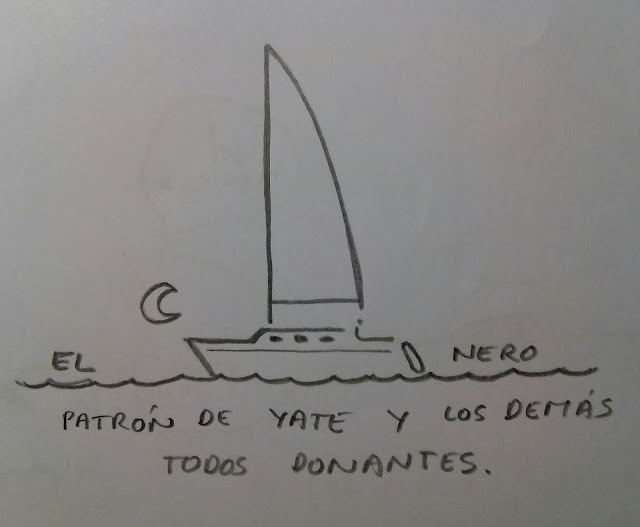 EL NERO
PATRÓN DE YATE Y LOS DEMÁS
TODOS DONANTES.